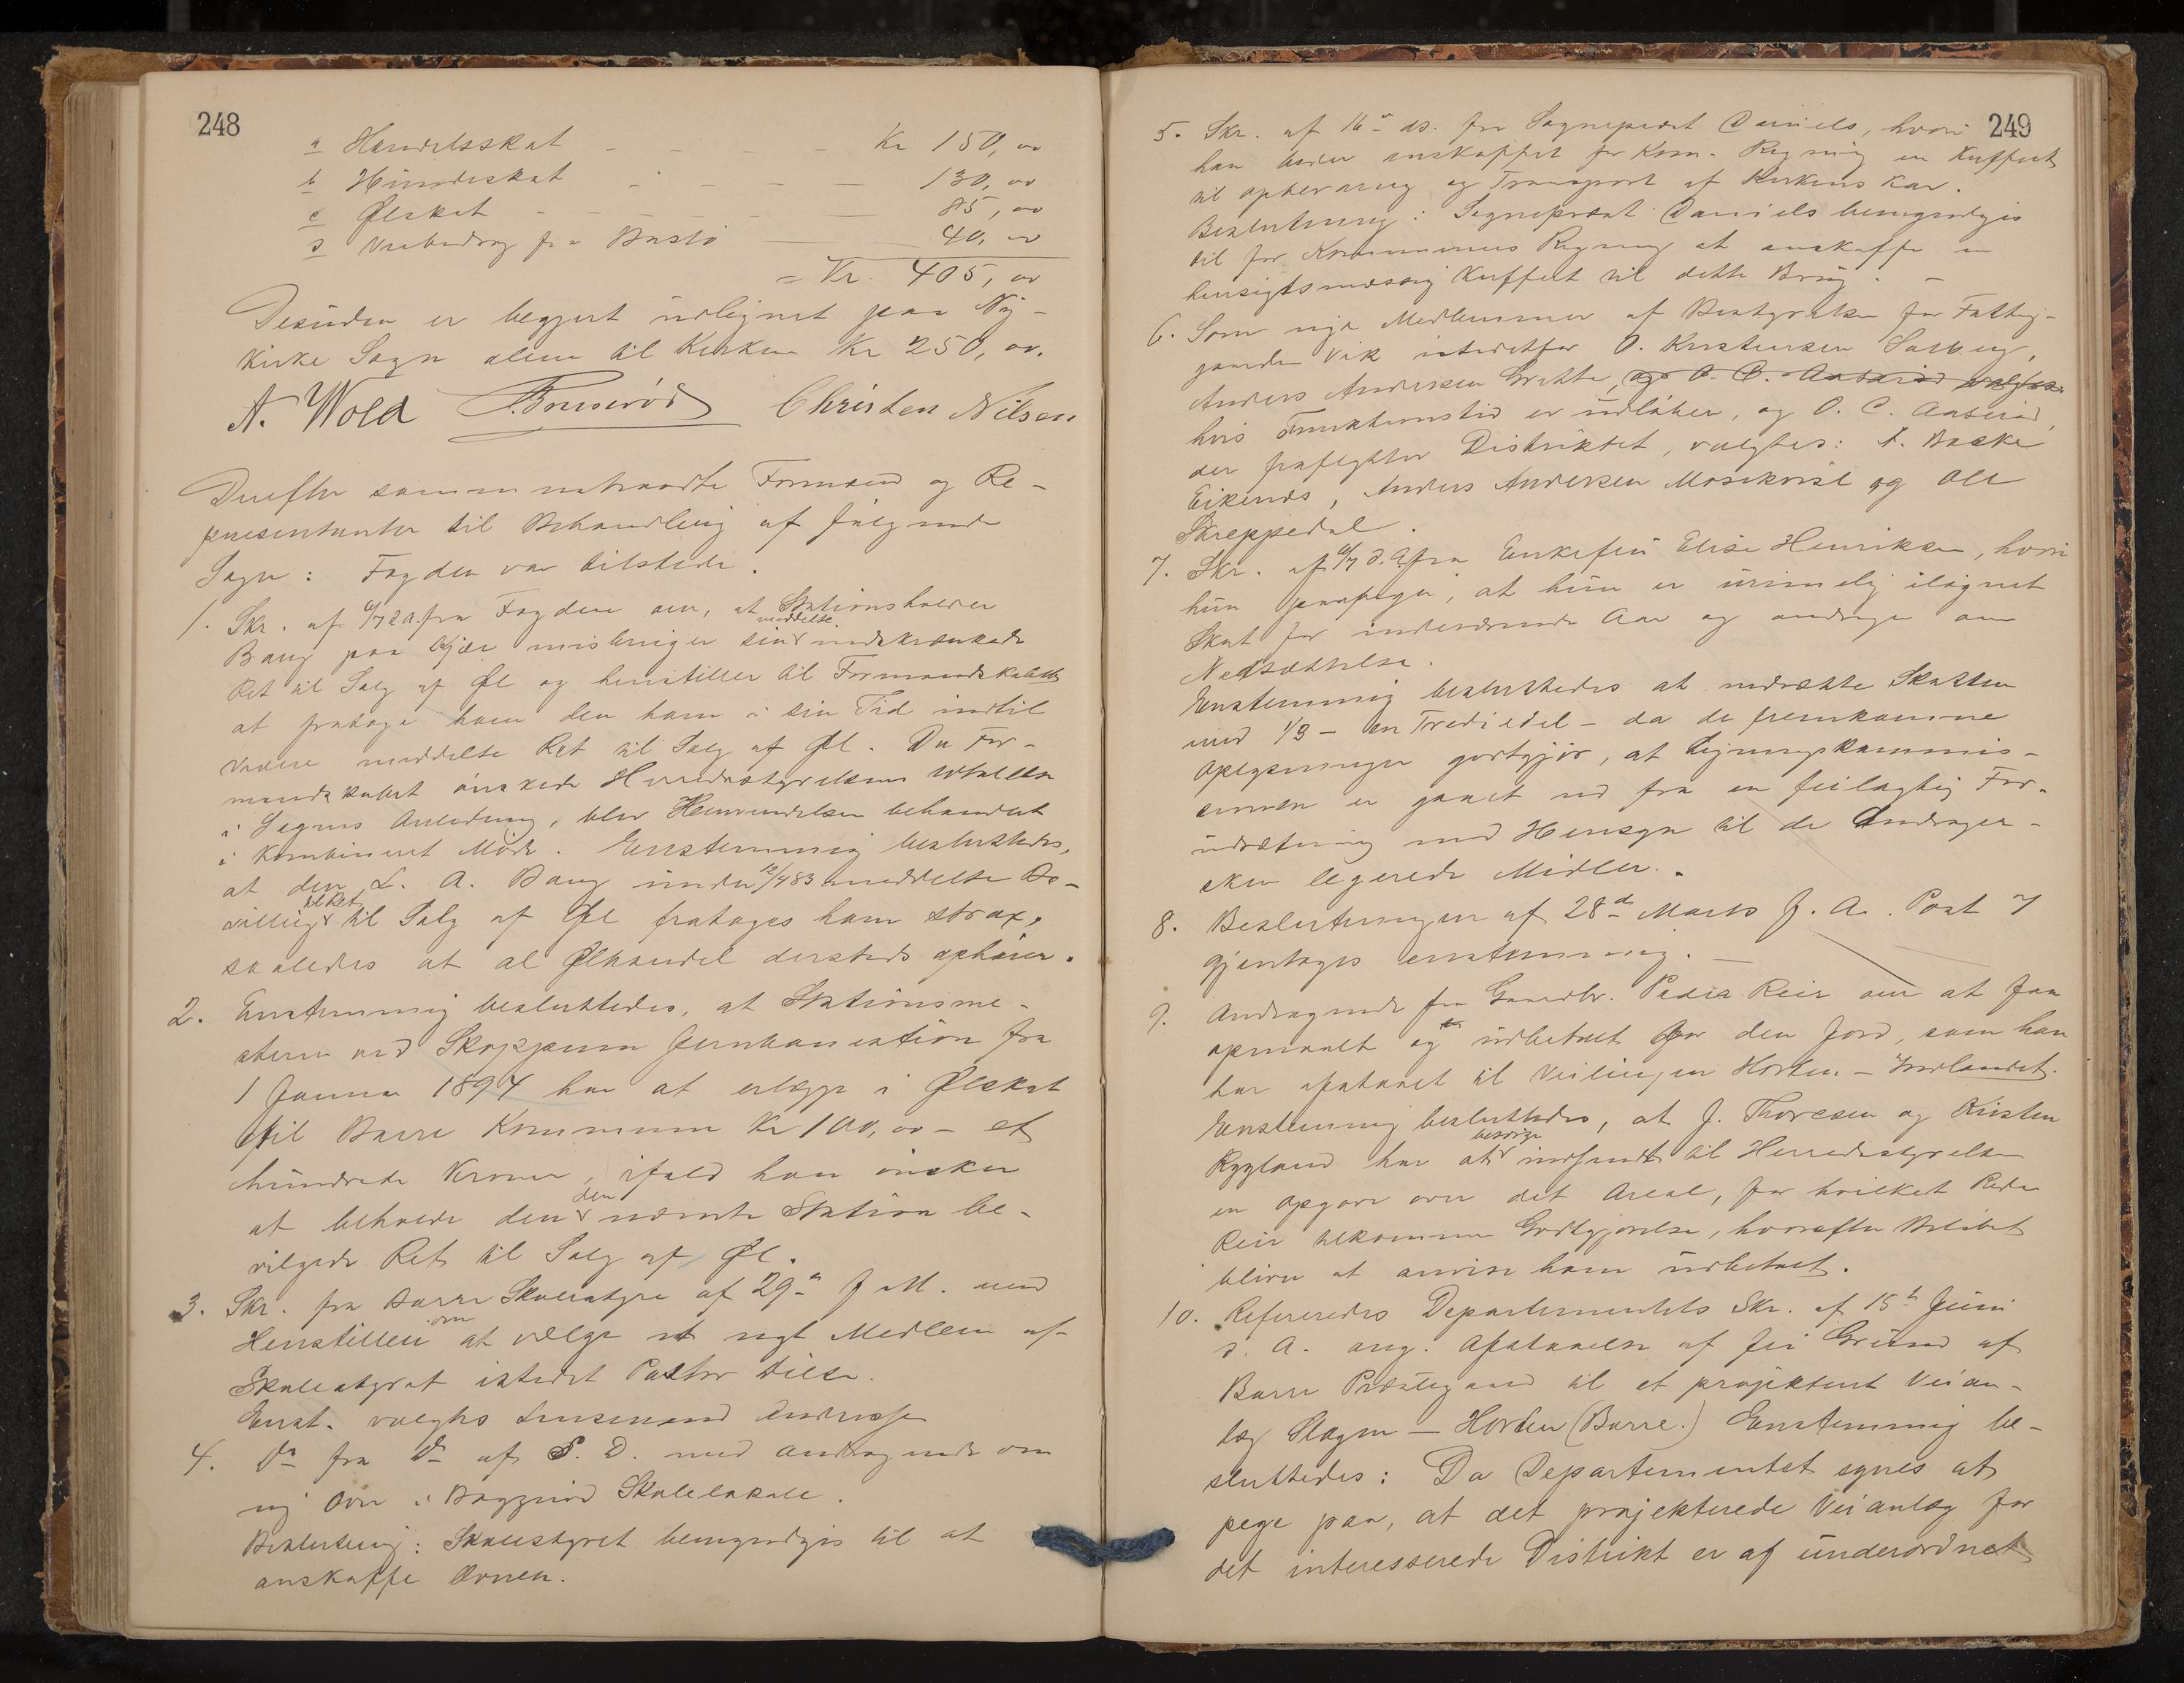 248
a Handelsskat - - - - - Kr 150,00
b Hundeskat - - - - 130,00
c Ølskat - - - - - 85,00
d Veibidrag fra Bastö 40,00
= Kr 405,00
Desuden er begjært udlignet paa Ny-
kirke Sogn alene til Kirken Kr 250,00.
A. Wold Christen Nilsen
Derefter sammentraadte Formænd og Re-
præsentanter til Behandling af følgende
Sager: Fogden var tilstede.
1. Skr. af fra Fogden om, at Stationsholder
Bang paa misbruger sin meddelte indskrænkede
Ret til Salg af Øl og henstiller til Formandskabet
at fratage ham den ham i sin Tid indtil
videre meddelte Ret til Salg af Øl. Da For-
mandskabet ønskede Herredsstyrelsens Udtalelse
i Sagens Anledning, blev Henvendelsen behandlet
i kombineret Møde. Enstemmig besluttedes,
at den L. A. Bang under meddelte Be-
villing til Salg af Øl fratages ham strax,
saaledes at al Ølhandel dersteds ophører.
2. Enstemmig besluttedes, at Stationsme-
steren ved Skoppum Jernbanestation fra
1 Januar 1894 har at erlægge i Ølskat
til Borre Kommune Kr 100,00 - et
hundrede Kroner, ifald han ønsker
at beholde den den nævnte Station be-
vilgede Ret til Salg af Øl.
3. Skr. fra Borre Skolestyre af 29de f. M. med
Henstillen om at vælge et nyt Medlem af
Skolestyret istedet Pastor
Enst. valgtes Lensmand
4. Do fra do af S. D. med Andragende om
ny Ovn i Skolelokale.
Beslutning: Skolestyret bemyndiges til at
anskaffe Ovnen.
249
5. Skr. af 16de ds. fra Sogneprest Daniels, hvori
han beder anskaffet for Kom. Regning en Kuffert
til Opbevaring og Transport af Kirkens Kar.
Beslutning: Sogneprest Daniels bemyndiges
til for Kommunens Regning at anskaffe en
hensigtsmæssig Kuffert til dette Brug. -
6. Som nye Medlemmer af Bestyrelsen for Fattig-
gaarden Vik istedetfor O. Kristensen Solberg,
Anders Andersen Grette, og O. C. Aaserød valgtes
hvis Funktionstid er udløben, og O. C. Aaserød,
der fraflytter Distriktet, valgtes: A. Bakke
Eikenes, Anders Andersen Moskvist og Ole
Skreppedal.
7. Skr. af d. A. fra Enkefru Elise Henriksen, hvori
hun paapeger, at hun er urimelig ilignet
Skat for indeværende Aar og andrager om
Nedsættelse.
Enstemmig besluttedes at nedsætte Skatten
med 1/3 - en Trediedel - da de fremkomne
Oplysninger godtgjør, at Ligningskommis-
sionen er gaaet ud fra en feilagtig For-
udsætning med Hensyn til de Andrager-
sken legerede Midler. -
8. Beslutningen af 28de Marts f. A. Post 7
gjentages enstemmig. -
9. Andragende fra Gaardbr. Peder Reir om at faa
opmaalt og udbetalt for den Jord, som han
har afstaaet til Veilinjen Horten - Indlandet.
Enstemmig besluttedes, at J. Thoresen og Kristen
Rygland har at besørge indsendt til Herredsstyrelsen
en Opgave over det Areal, for hvilket Peder
Reir tilkommer Godtgjørelse, hvorefter Beløbet
bliver at anvise ham udbetalt.
10. Refereredes Departementets Skr. af 15de Juni
d. A. ang. Afstaaelse af fri Grund af
Borre Prestegaard til et projekteret Veian-
læg Slagen - Horten (Borre.) Enstemmig be-
sluttedes: Da Departementet synes at
pege paa, at det projekterede Veianlæg for
det interesserede Distrikt er af underordnet